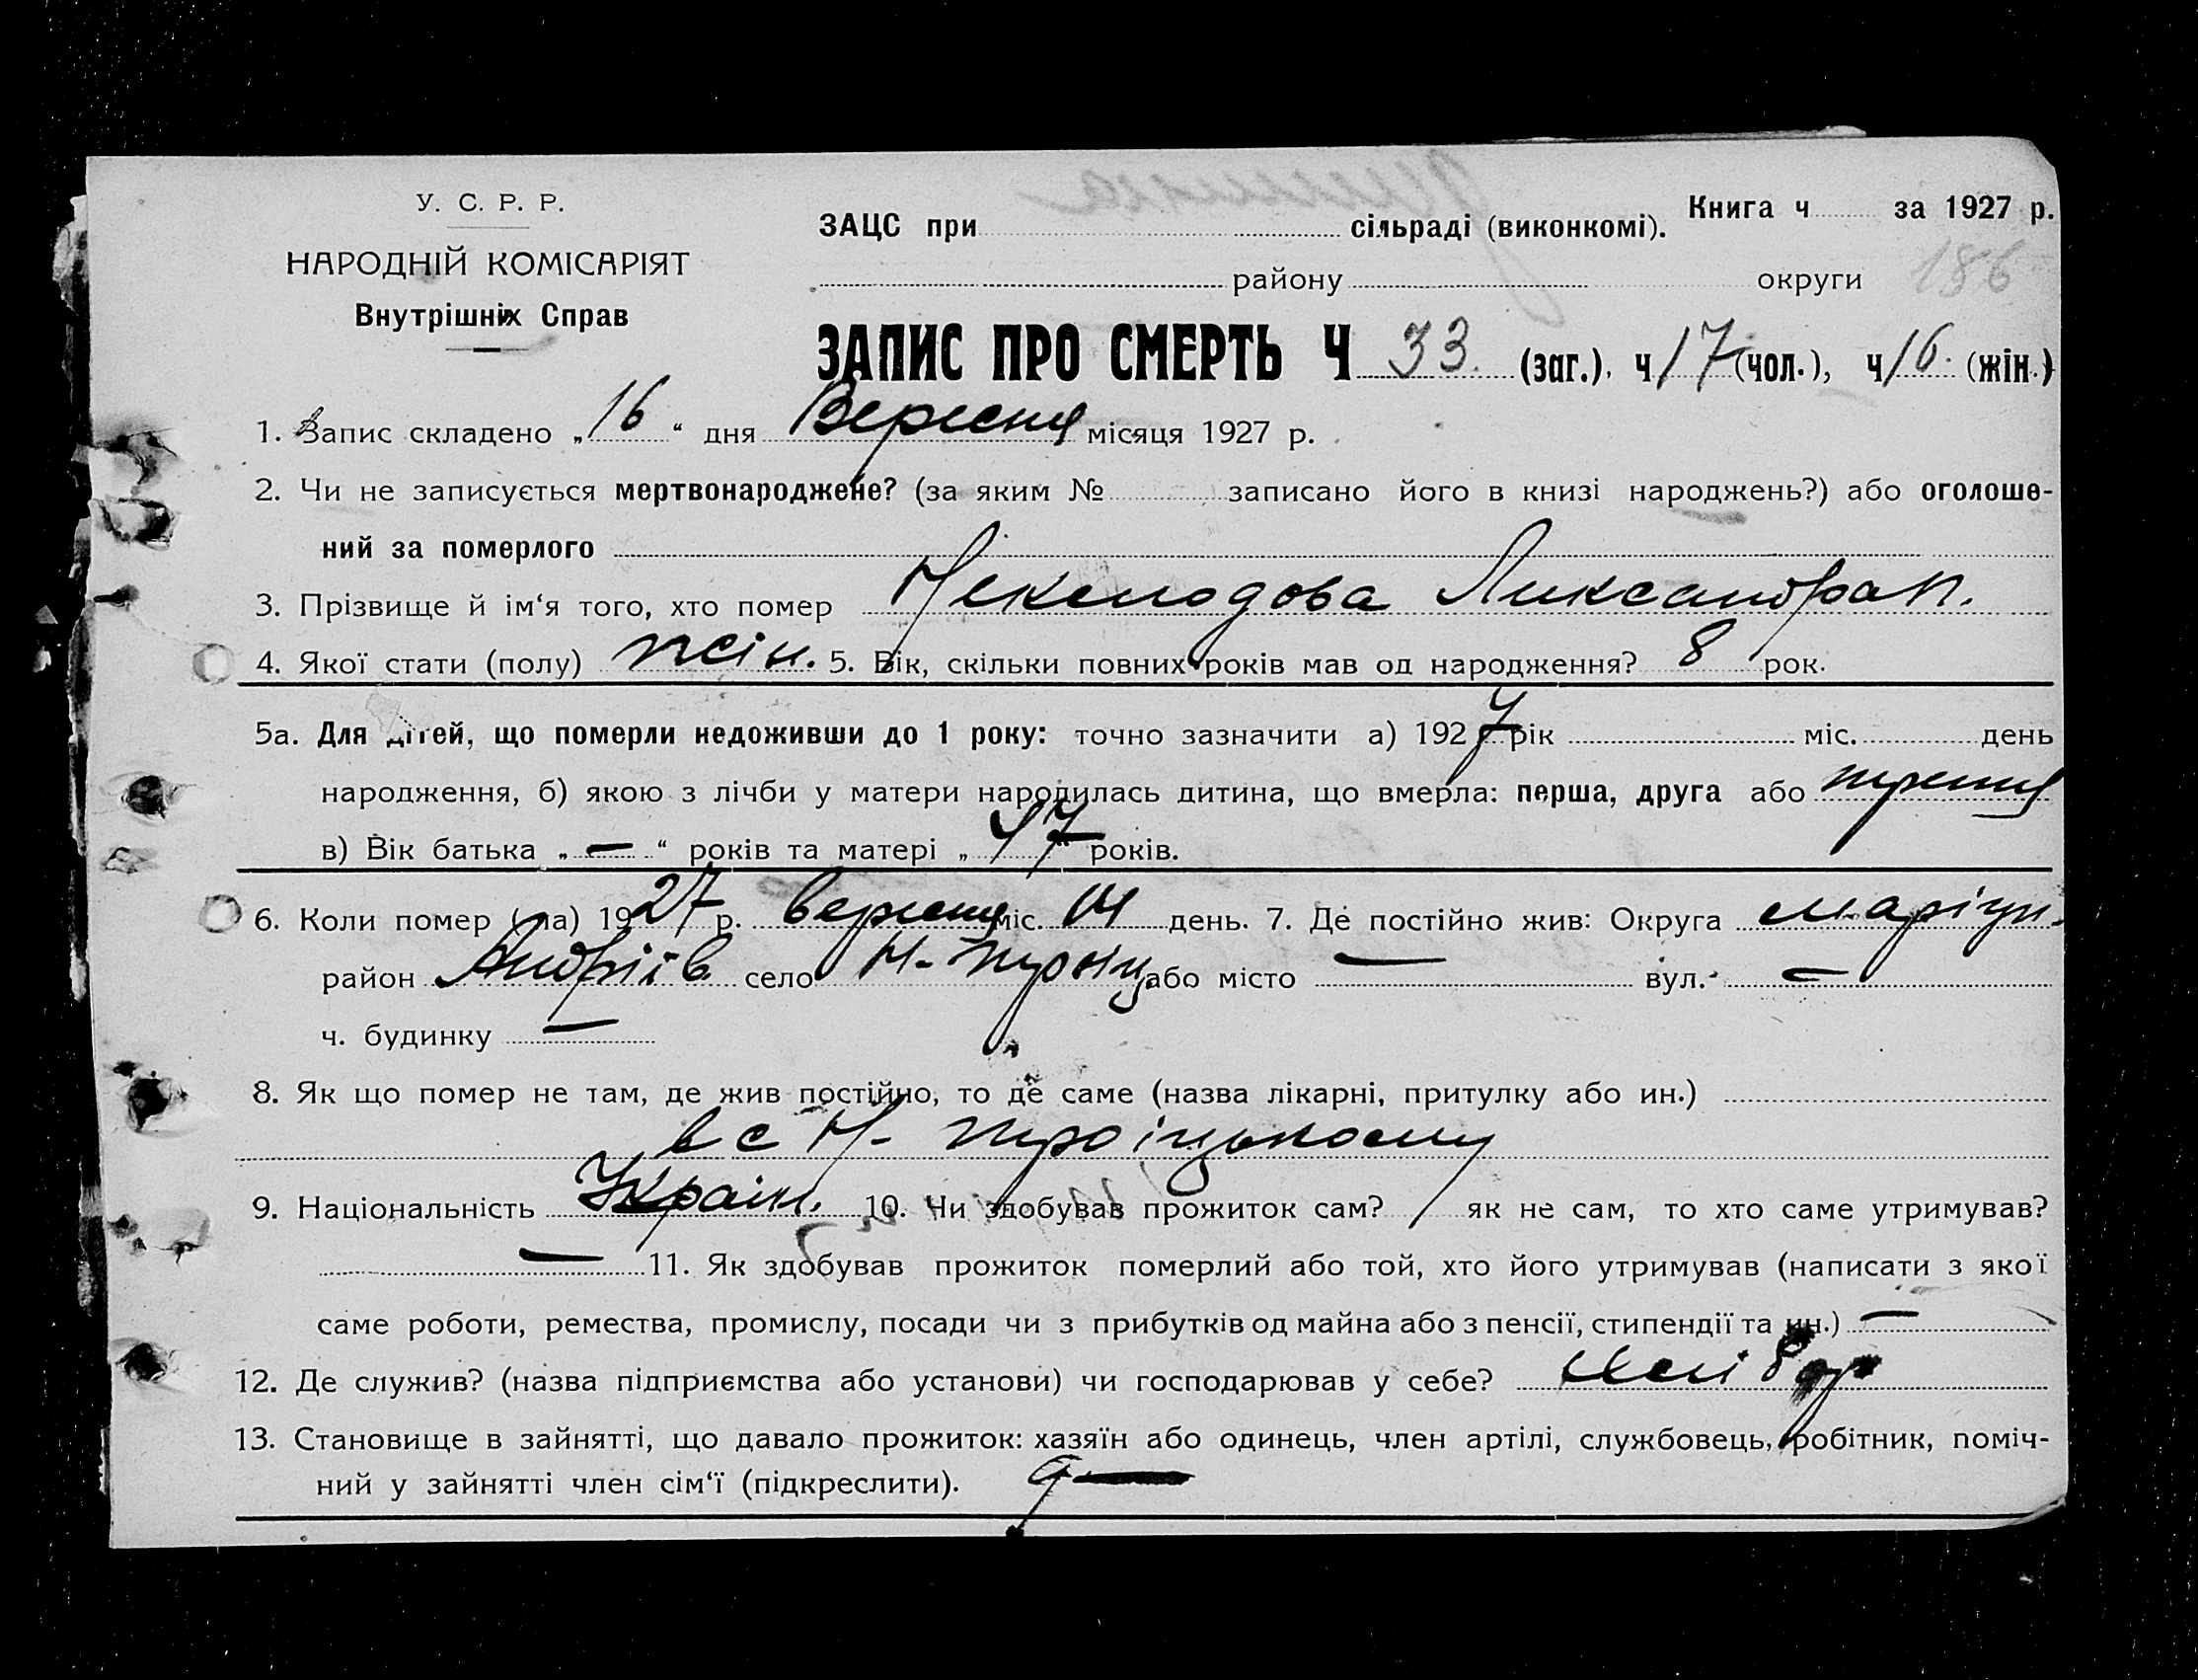 У. С. Р. Р.
НАРОДНІЙ КОМІСАРІЯТ
Внутрішніх Справ
Книга ч за 1927 р.
ЗАЦС при сільраді (виконкомі).
району округи 186
ЗАПИС ПРО СМЕРТЬ Ч 33. (заг.), ч 17 (чол.), ч 16. (жін.)
1. Запис складено „16“ дня Вересня місяця 1927 р.
2. Чи не записується мертвонароджене? (за яким № записано його в книзі народжень?) або оголоше-
ний за померлого
3. Прізвище й ім‘я того, хто помер
4. Якої стати (полу) жін. 5. Вік, скільки повних років мав од народження? 8 рок.
5а. Для дітей, що померли недоживши до 1 року: точно зазначити а) 1927 рік міс. день
народження, б) якою з лічби у матери народилась дитина, що вмерла: перша, друга або третя
в) Вік батька „ — “ років та матері „ 47 років.
6. Коли помер (ла) 1927 р. вересня міс. 14 день. 7. Де постійно жив: Округа маріуп.
район Андріїв. село Н-Троіц або місто — вул. —
ч. будинку —
8. Як що помер не там, де жив постійно, то де саме (назва лікарні, притулку або ин.)
в с Н-Троіцькому
9. Національність Україн. 10. Чи здобував прожиток сам? / як не сам, то хто саме утримував?
— 11. Як здобував прожиток померлий або той, хто його утримував (написати з якої
саме роботи, ремества, промислу, посади чи з прибутків од майна або з пенсії, стипендії та ин.) —
12. Де служив? (назва підприємства або установи) чи господарював у себе?
13. Становище в зайнятті, що давало прожиток: хазяїн або одинець, член артілі, службовець, робітник, поміч-
ний у зайнятті член сім‘ї (підкреслити).